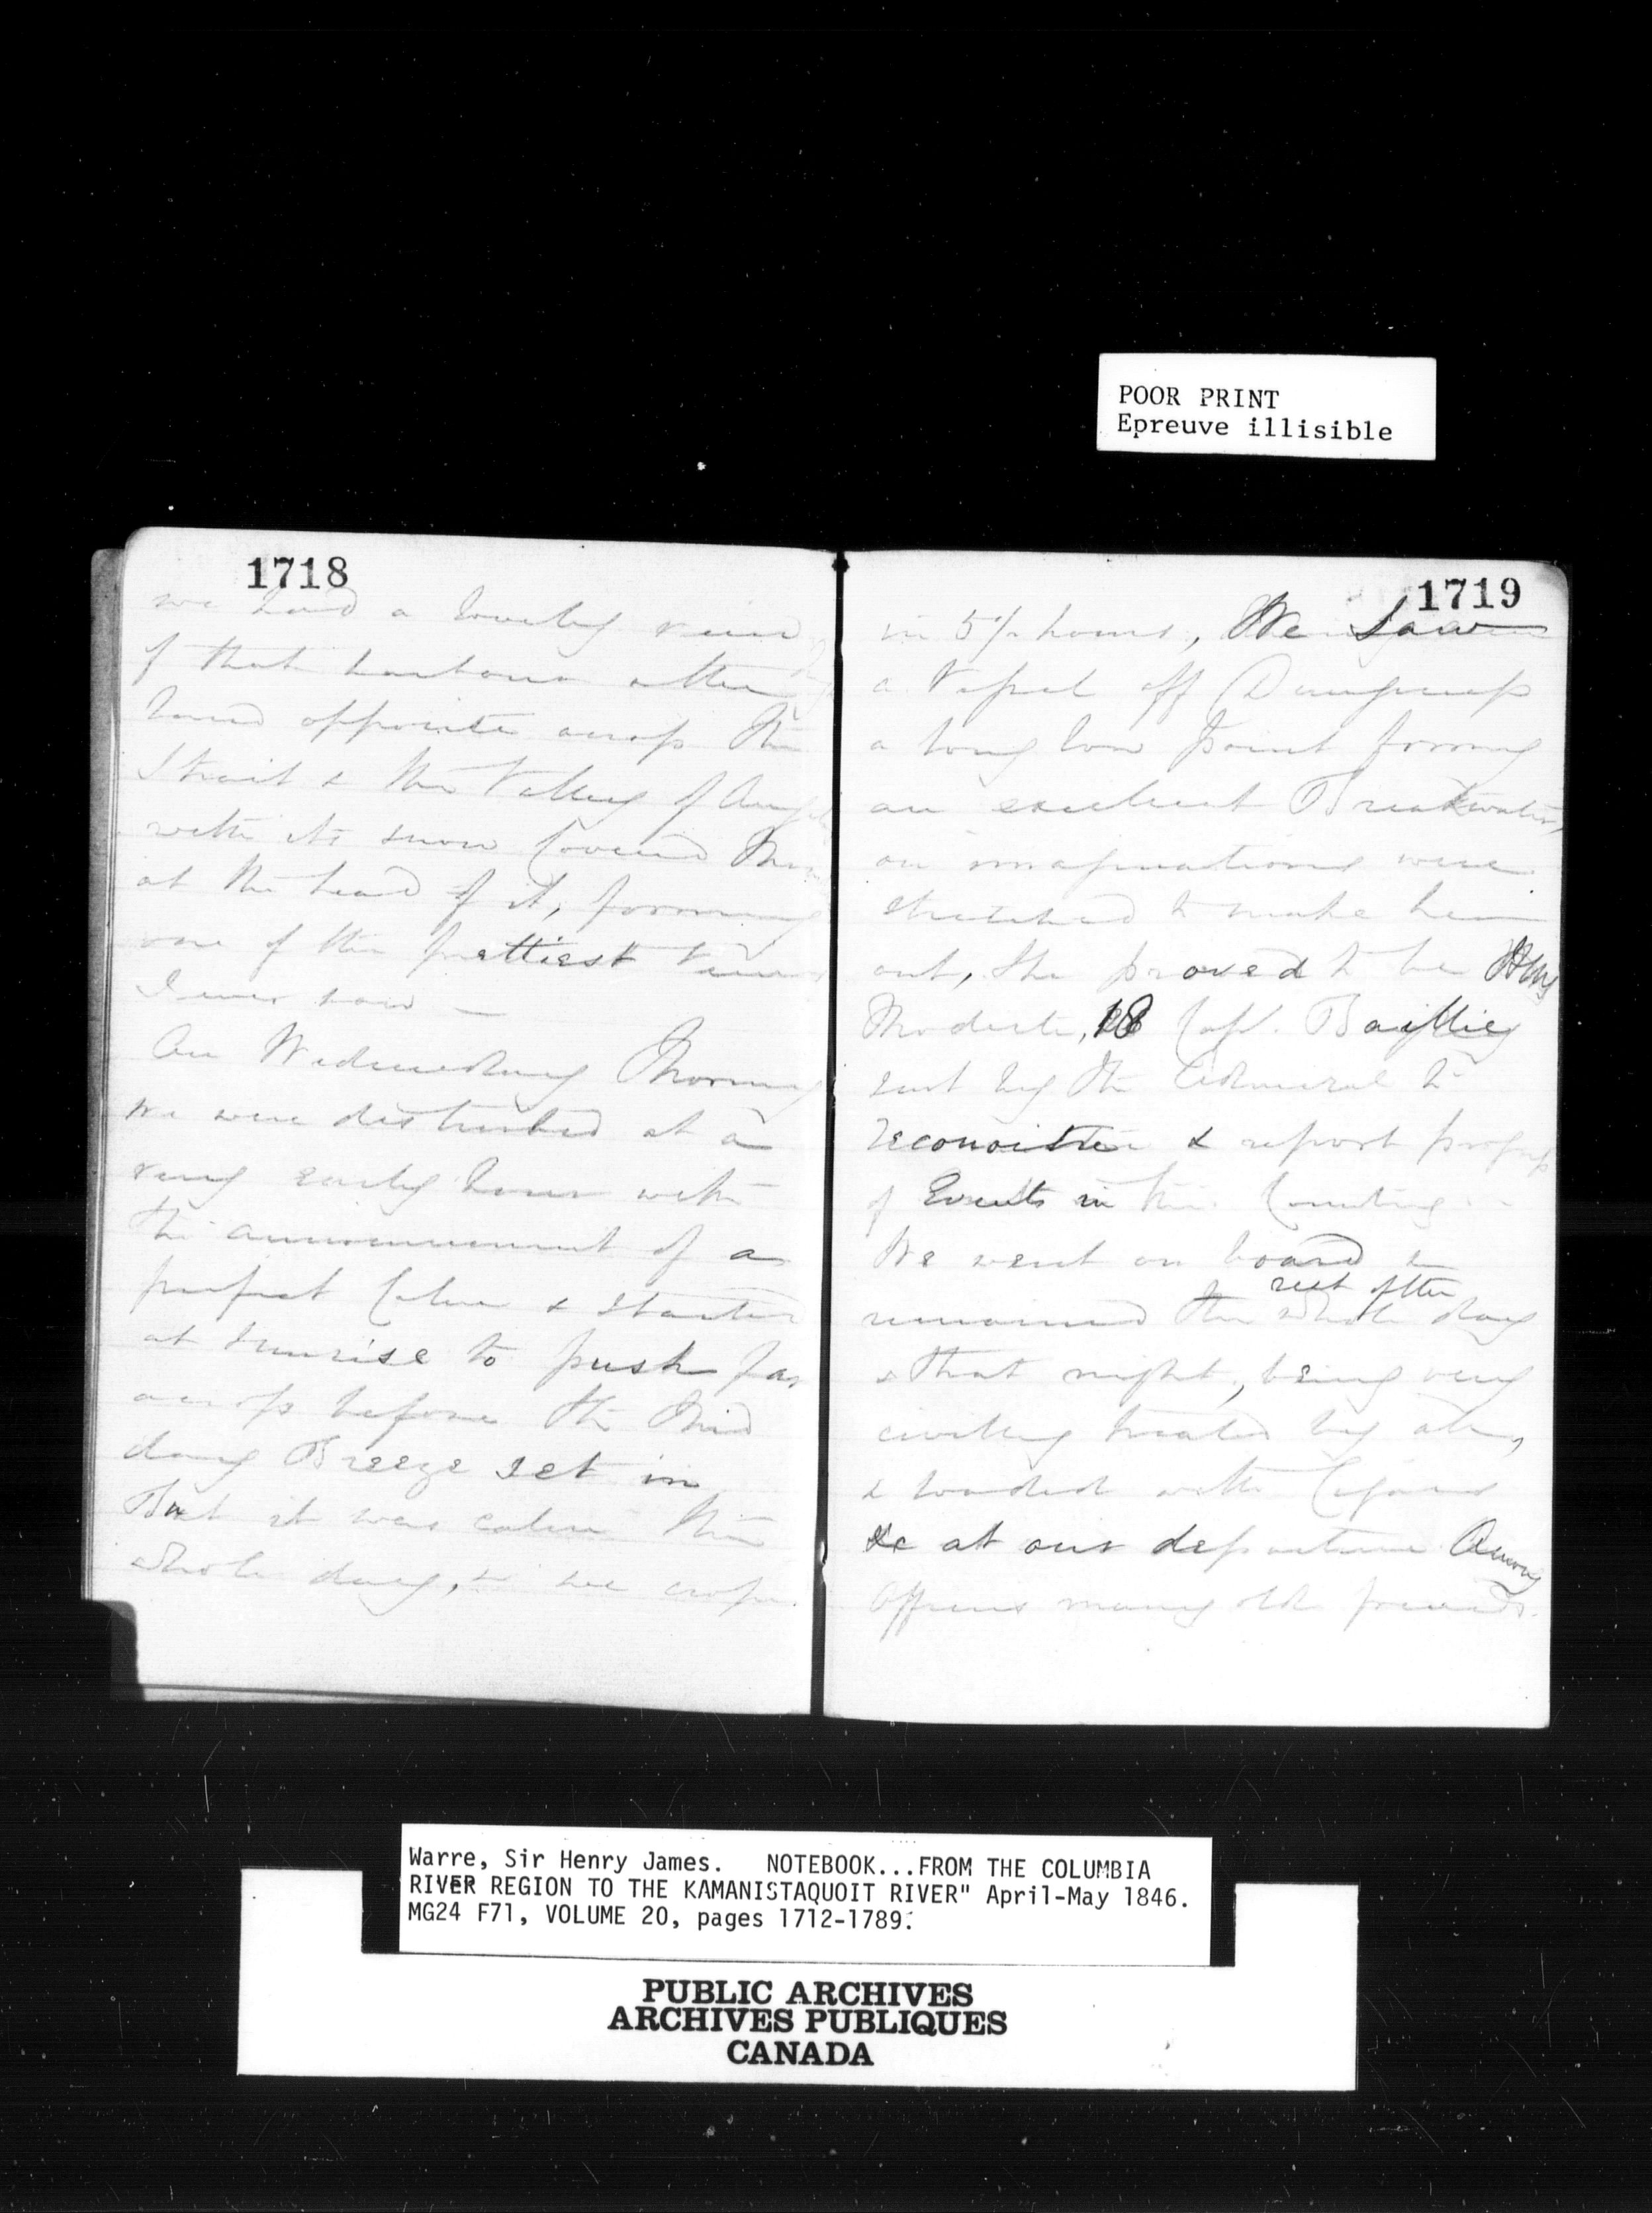 POOR PRINT
Epreuve illisible
1718
we had a lovely view
of that harbour
opposite across the
Strait & the Valley of
with its snow Covered
at the head of it, forming
one of the prettiest Views
I ever saw —
On Wednesday Morning
We were disturbed at a
very early hour with
the announcement of a
perfect Calm & started
at sunrise to push far
across before the Mid
day Breeze set in
But it was calm the
whole day, & we
1719
in 5½ hours, We saw
a Vessel off Dungeness
a long low Point forming
an excellent Breakwater,
our imaginations were
stretched to make her
out, she proved to be HMS
Modeste, 18 Capt. Baillie
sent by the Admiral to
reconoitre & report progress
of Events in this Country
We went on board &
rest of the
remained the whole day
& that night, being very
civilly treated by all,
& loaded with Cigars
&c at our departure Among
Officers many old friends.
Warre, Sir Henry James. NOTEBOOK...FROM THE COLUMBIA
RIVER REGION TO THE KAMANISTAQUOIT RIVER" April-May 1846.
MG24 F71, VOLUME 20, pages 1712-1789.
PUBLIC ARCHIVES
ARCHIVES PUBLIQUES
CANADA